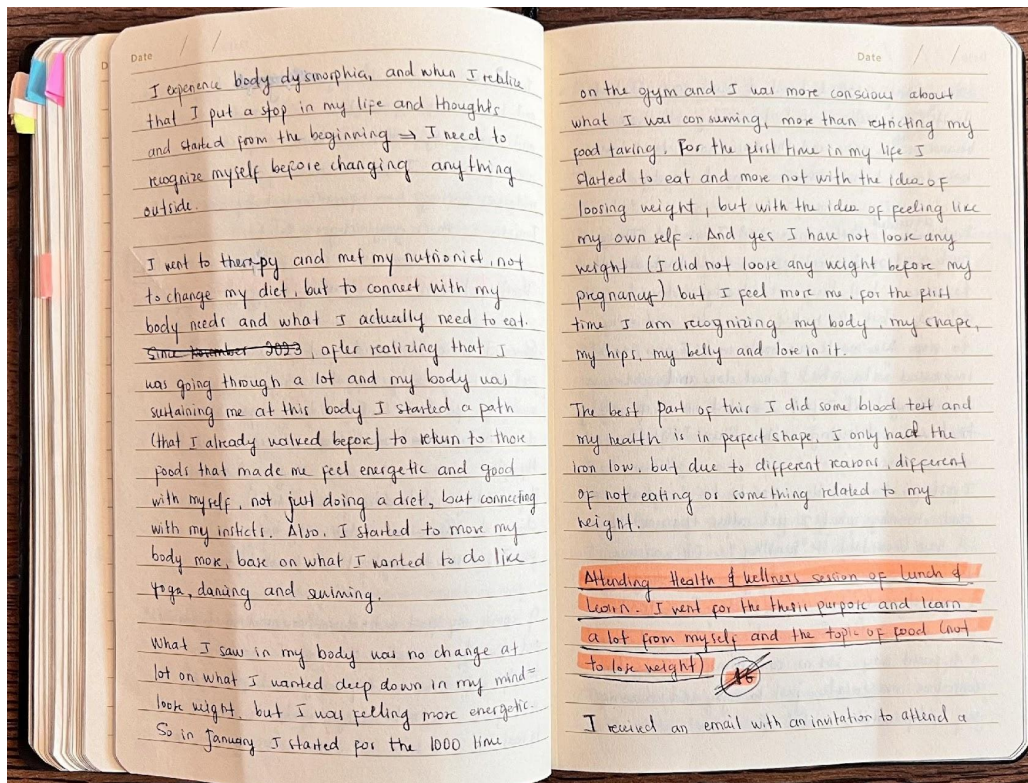 Date / /
I experience body dysmorphia, and when I realize
that I put a stop in my life and thoughts
and started from the beginning ⇒ I need to
recognize myself before changing anything
outside.
I went to therapy and met my nutrionist, not
to change my diet, but to connect with my
body needs and what I actually need to eat.
Since November 2023, after realizing that I
was going through a lot and my body was
sustaining me at this body I started a path
(that I already walked before) to return to those
foods that made me feel energetic and good
with myself, not just doing a diet, but connecting
with my insticts. Also, I started to move my
body more, base on what I wanted to do like
yoga, dancing and swiming.
What I saw in my body was no change at
lot on what I wanted deep down in my mind=
loose weight, but I was felling more energetic.
So in January I started for the 1000 time
Date / /
on the gym and I was more consious about
what I was consuming, more than restricting my
food taking. For the first time in my life I
started to eat and move not with the idea of
loosing weight, but with the idea of feeling like
my own self. And yes I have not loose any
weight (I did not loose any weight before my
pregnancy) but I feel more me, for the first
time I am recognizing my body, my shape,
my hips, my belly and love in it.
The best part of this I did some blood test and
my health is in perfect shape, I only had the
iron low, but due to different reasons, different
of not eating or something related to my
weight.
Attending Health & Wellness session of Lunch &
Learn. I went for the thesis purpose and learn
a lot from myself and the topic of food (not
to lose weight)
I received an email with an invitation to attend a